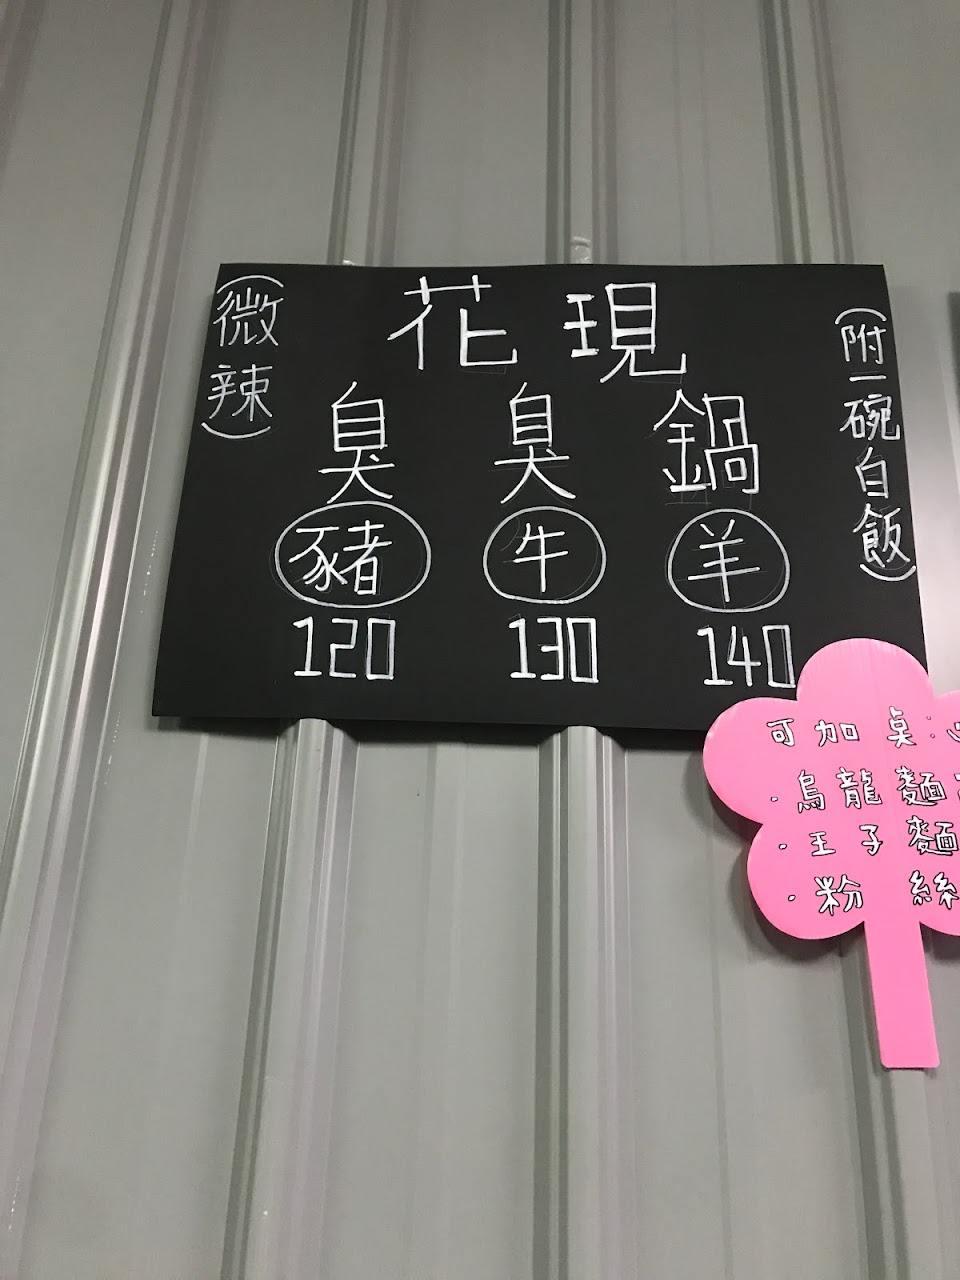 (微辣)
花現
臭臭鍋
(附一碗白飯)
豬 牛 羊
120 130 140
可加桌:
·烏龍麵
·王子麵
·粉絲